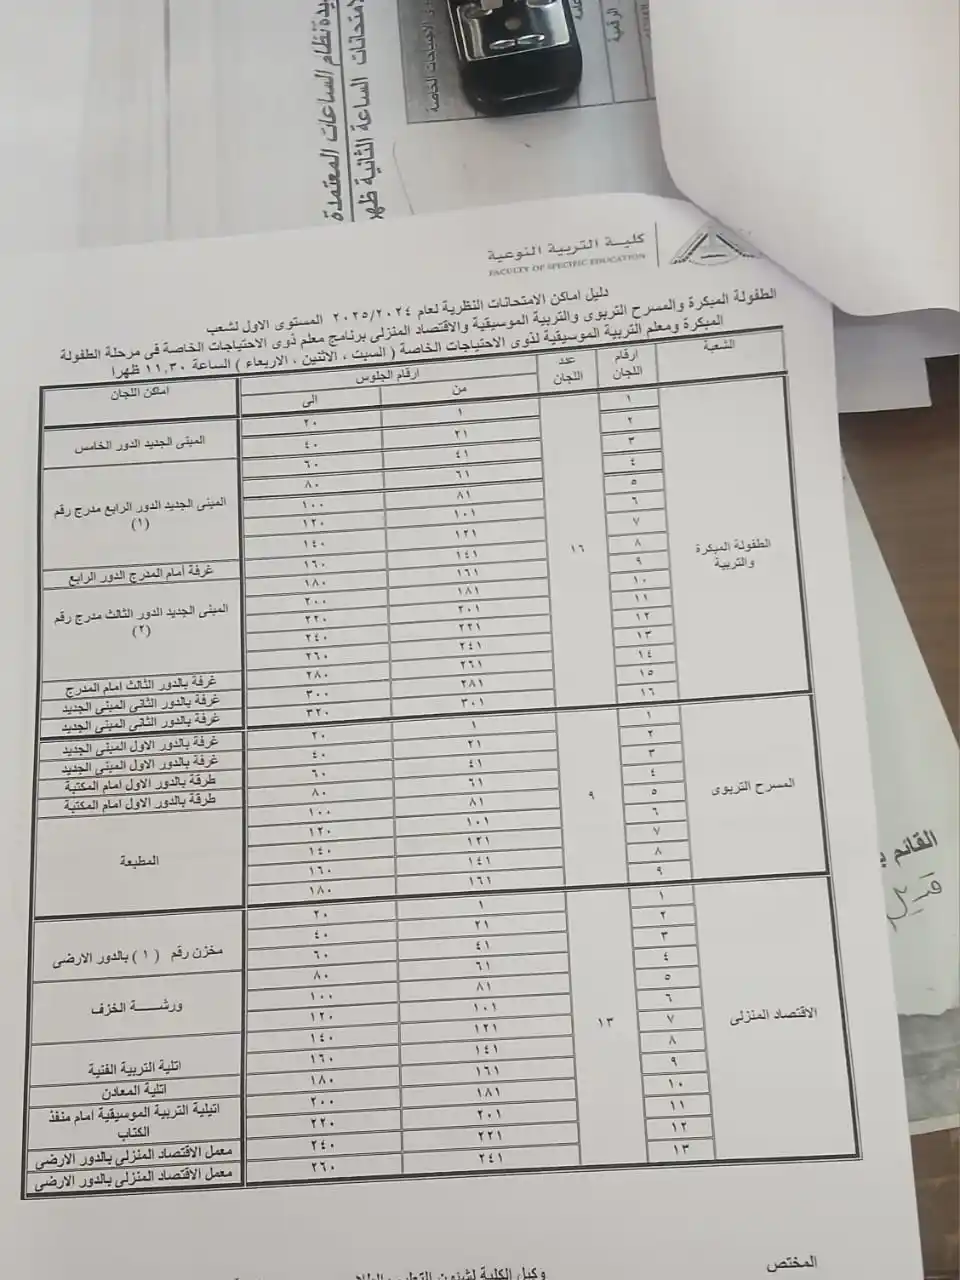 نظام الساعات المعتمدة
امتحانات الساعة الثانية ظهر
الاحتياجات الخاصة
الرقمية
كلية التربية النوعية
FACULTY OF SPECIFIC EDUCATION
دليل اماكن الامتحانات النظرية لعام ٢٠٢٥/٢٠٢٤ المستوى الاول لشعب
الطفولة المبكرة والمسرح التربوى والتربية الموسيقية والاقتصاد المنزلى برنامج معلم ذوى الاحتياجات الخاصة فى مرحلة الطفولة
المبكرة ومعلم التربية الموسيقية لذوى الاحتياجات الخاصة ( السبت ، الاثنين ، الاربعاء ) الساعة ١١,٣٠ ظهرا
الشعبة ارقام اللجان عدد اللجان ارقام الجلوس اماكن اللجان
من الى
الطفولة المبكرة والتربية ١٦
١ ١ ٢٠
٢ ٢١ ٤٠
٣ ٤١ ٦٠
٤ ٦١ ٨٠
٥ ٨١ ١٠٠
٦ ١٠١ ١٢٠
٧ ١٢١ ١٤٠
٨ ١٤١ ١٦٠
٩ ١٦١ ١٨٠
١٠ ١٨١ ٢٠٠
١١ ٢٠١ ٢٢٠
١٢ ٢٢١ ٢٤٠
١٣ ٢٤١ ٢٦٠
١٤ ٢٦١ ٢٨٠
١٥ ٢٨١ ٣٠٠
١٦ ٣٠١ ٣٢٠
المبنى الجديد الدور الخامس
المبنى الجديد الدور الرابع مدرج رقم
(١)
غرفة أمام المدرج الدور الرابع
المبنى الجديد الدور الثالث مدرج رقم
(٢)
غرفة بالدور الثالث امام المدرج
غرفة بالدور الثانى المبنى الجديد
غرفة بالدور الثانى المبنى الجديد
المسرح التربوى ٩
١ ١ ٢٠
٢ ٢١ ٤٠
٣ ٤١ ٦٠
٤ ٦١ ٨٠
٥ ٨١ ١٠٠
٦ ١٠١ ١٢٠
٧ ١٢١ ١٤٠
٨ ١٤١ ١٦٠
٩ ١٦١ ١٨٠
غرفة بالدور الاول المبنى الجديد
غرفة بالدور الاول المبنى الجديد
طرقة بالدور الاول امام المكتبة
طرقة بالدور الاول امام المكتبة
المطبعة
الاقتصاد المنزلى ١٣
١ ١ ٢٠
٢ ٢١ ٤٠
٣ ٤١ ٦٠
٤ ٦١ ٨٠
٥ ٨١ ١٠٠
٦ ١٠١ ١٢٠
٧ ١٢١ ١٤٠
٨ ١٤١ ١٦٠
٩ ١٦١ ١٨٠
١٠ ١٨١ ٢٠٠
١١ ٢٠١ ٢٢٠
١٢ ٢٢١ ٢٤٠
١٣ ٢٤١ ٢٦٠
مخزن رقم ( ١ ) بالدور الارضى
ورشـــــة الخزف
اتلية التربية الفنية
اتلية المعادن
اتيلية التربية الموسيقية امام منفذ
الكتاب
معمل الاقتصاد المنزلى بالدور الارضى
معمل الاقتصاد المنزلى بالدور الارضى
القائم
المختص
وكيل الكلية لشئون التعليم والطلا